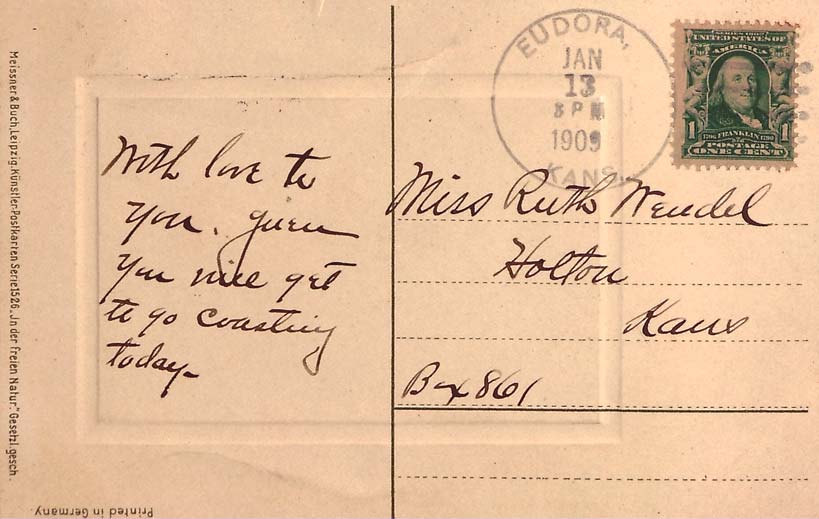 Meissner & Buch, Leipzig. Künstler-Postkarten Serie 1526. "In der freien Natur." Gesetzl. gesch.
With love to
you. guess
you will get
to go coasting
today-
EUDORA,
JAN
13
3 PM
1909
KANS.
SERIES 1902
UNITED STATES OF
AMERICA
1706 FRANKLIN 1790
1 1
POSTAGE
ONE CENT
Miss Ruth Wendel
Holton
Kans
Box 861
Printed in Germany.